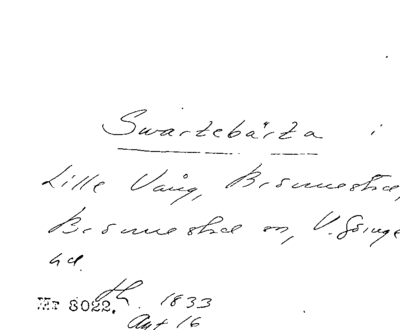 Swartebärta i
Lille Vång, Brömestad,
Brömestad sn, V. Göinge
hd.
Mr 8022. 1833
Akt 16